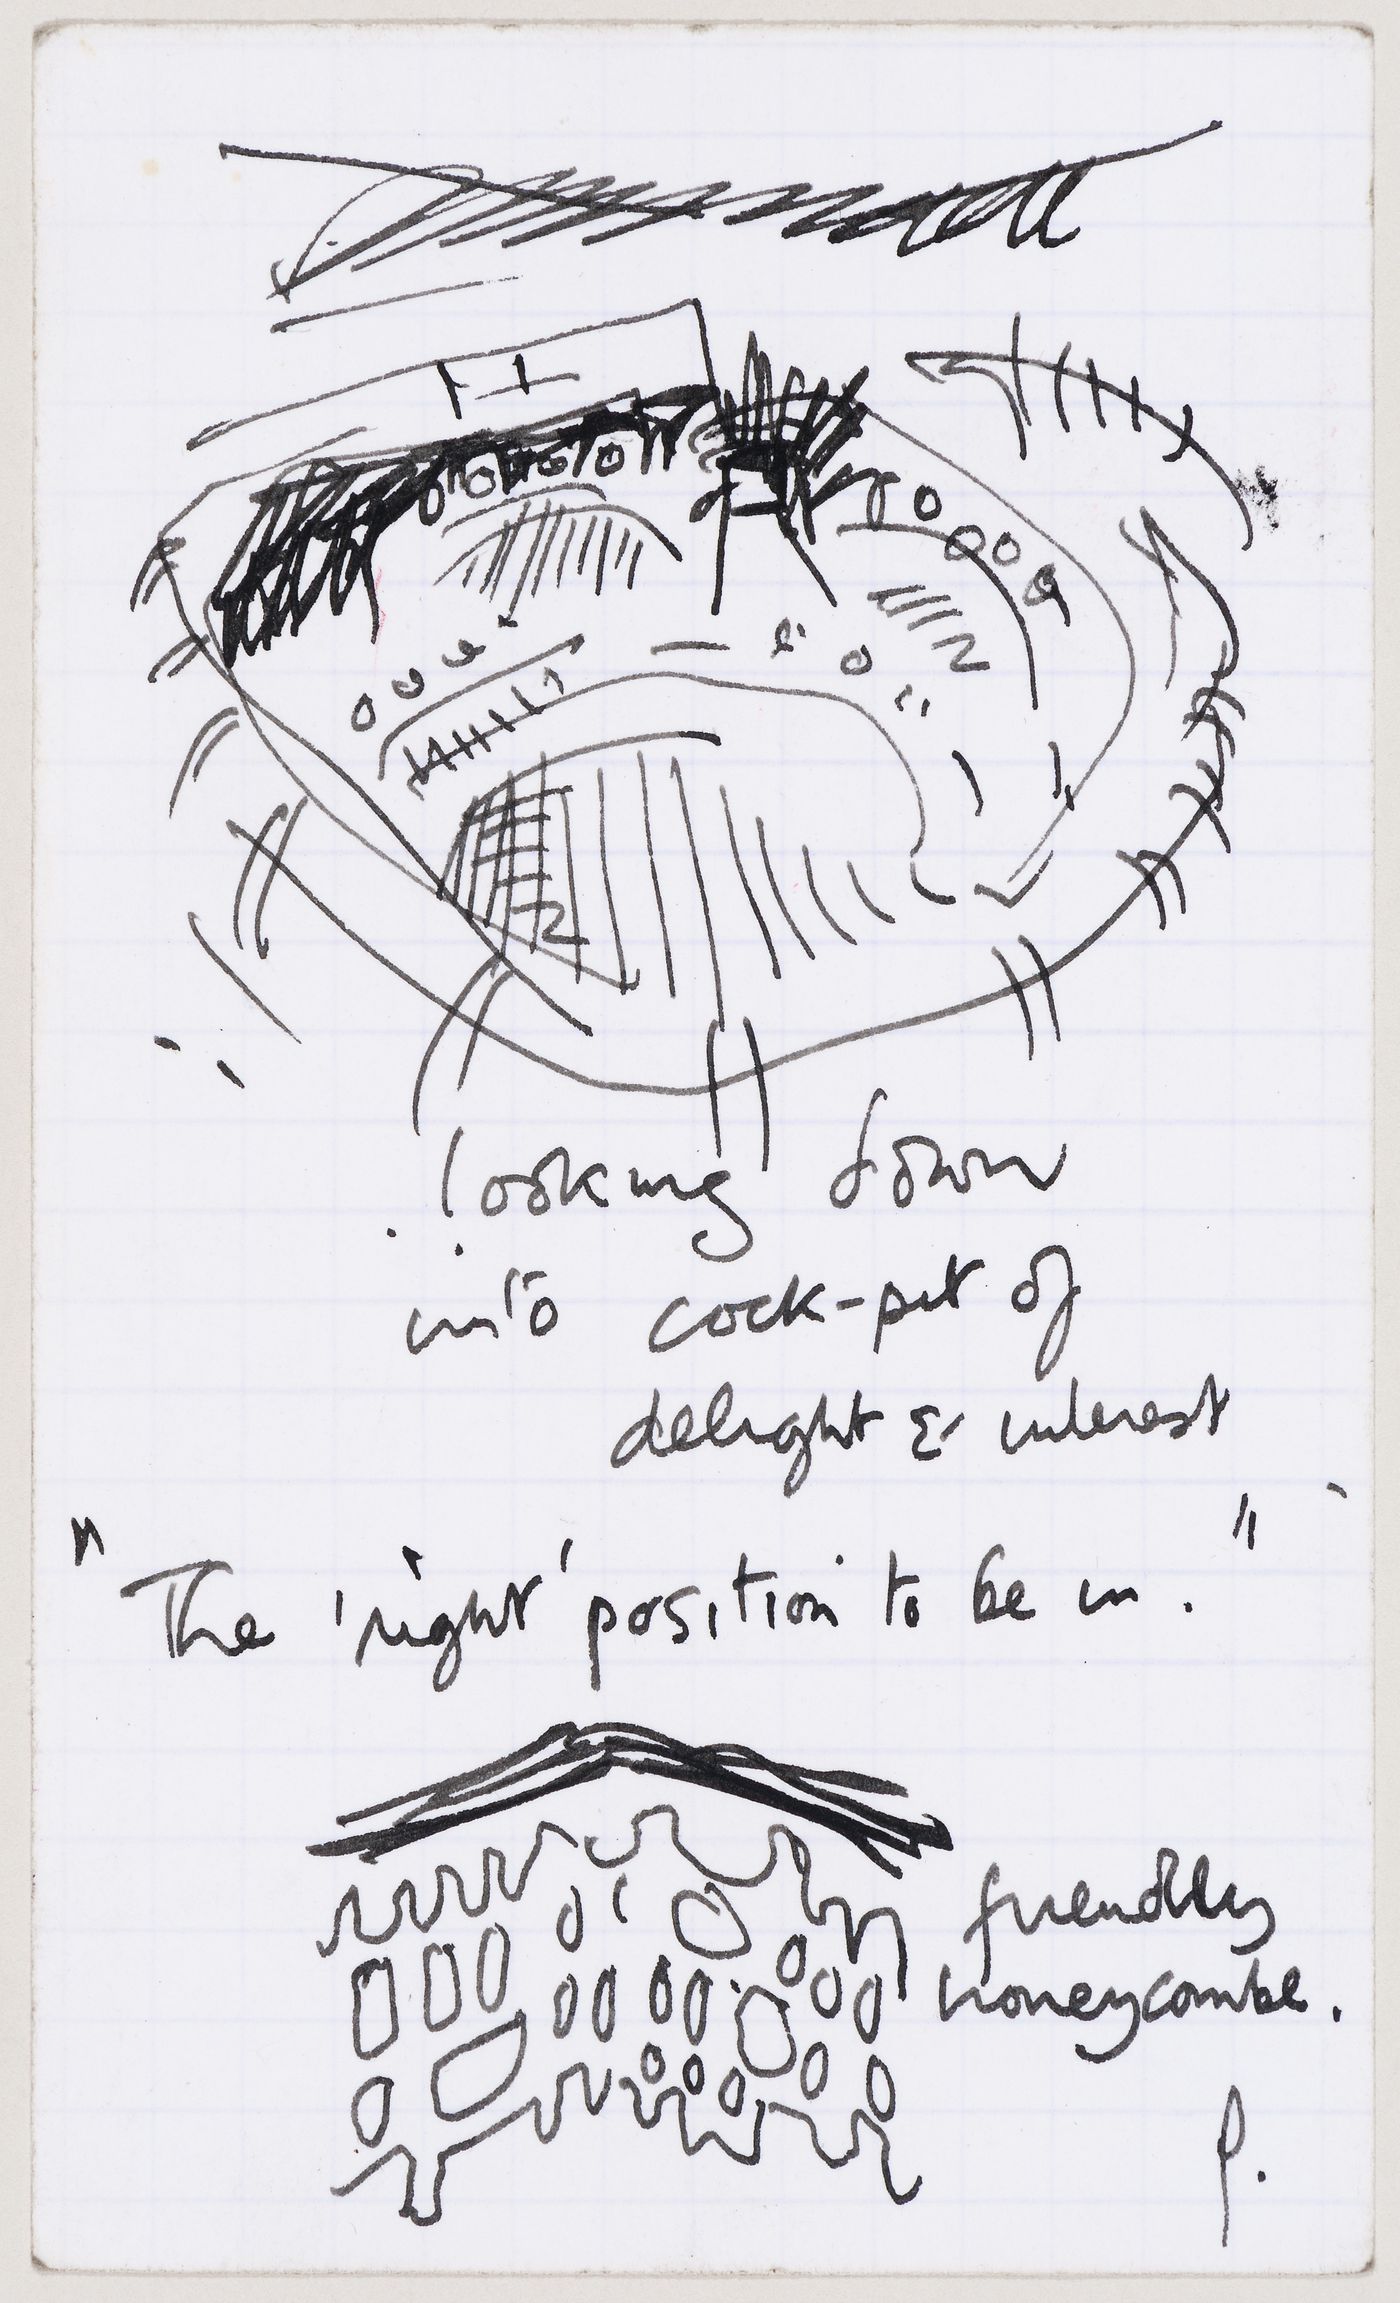 looking down
into cock-pit of
delight & interest
"The 'right' position to be in."
friendly
honeycombe.
P.